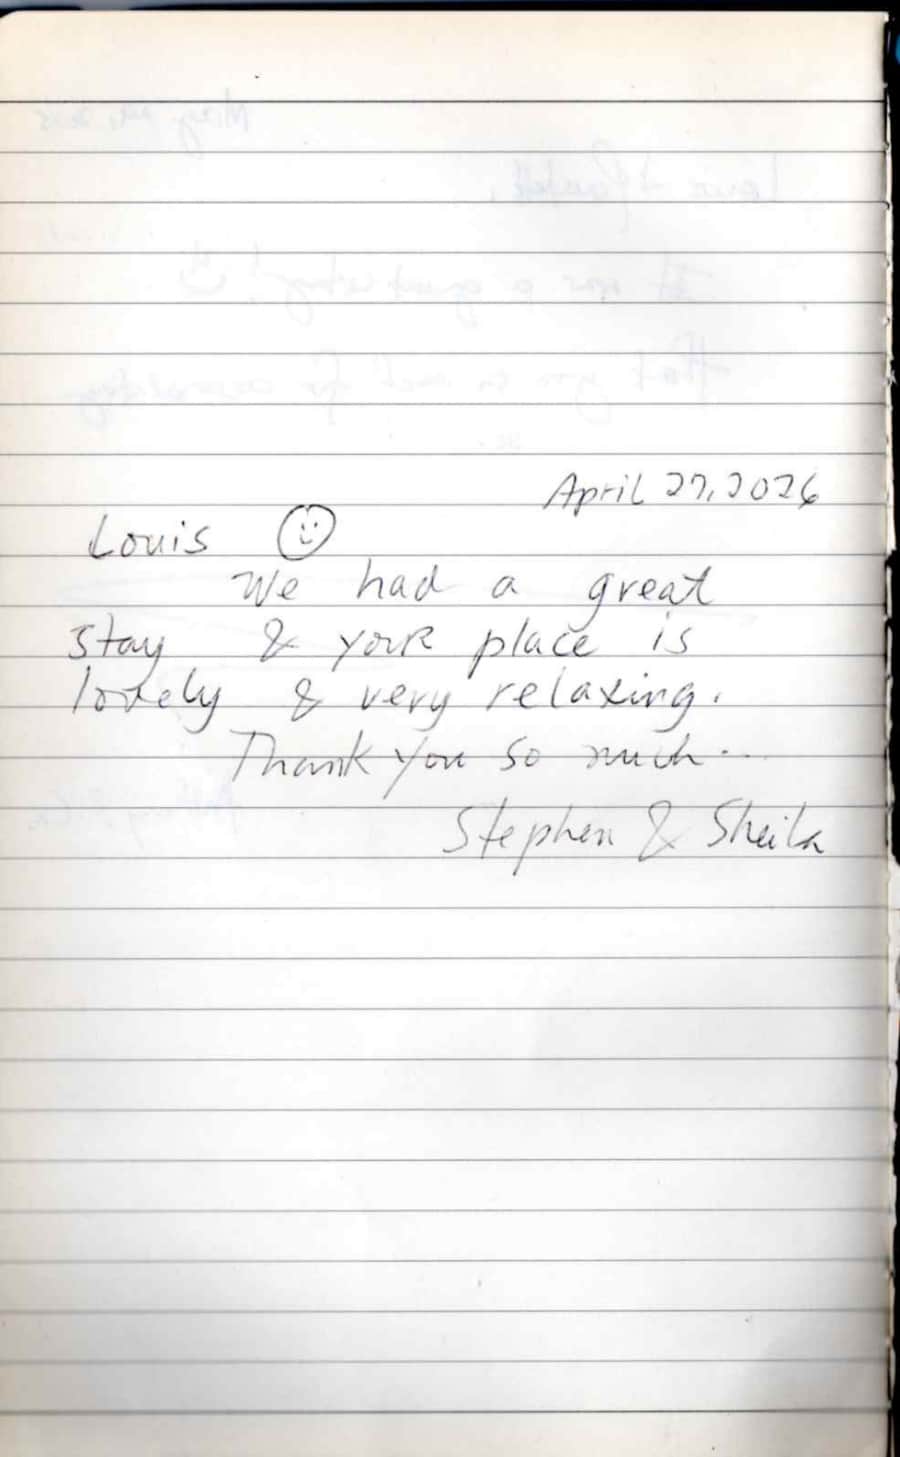 April 27, 2026
Louis ☺
We had a great
stay & your place is
lovely & very relaxing.
Thank you so much...
Stephen & Sheila